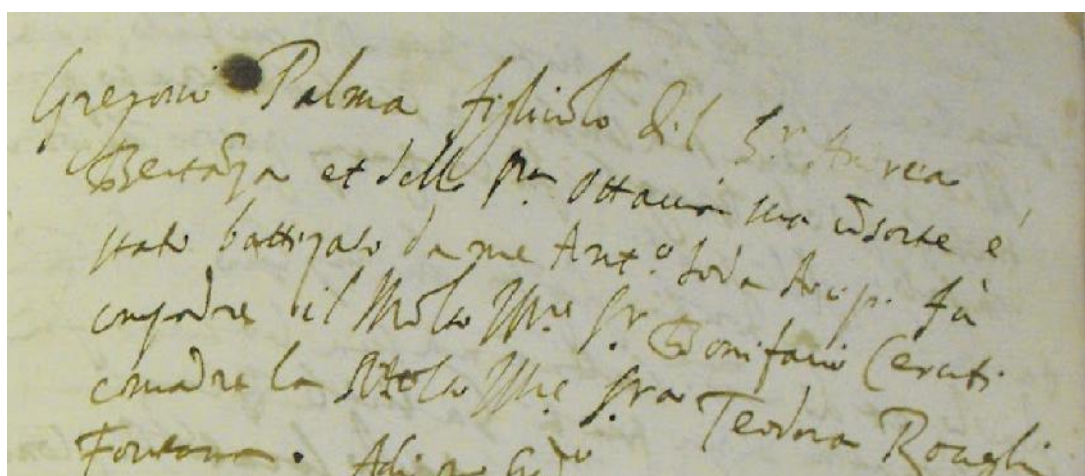 Gregorio Palma figliuolo del Sr. Andrea
Bertazza et della Sra Ottavia sua cõsorte è
stato battizato da me Antº. Soda Arcip. fù
cõpadre il Molto Illre Sr. Bonifacio Ceruti
cõmadre la Molto Illre Sra Teodora
Fontana. Adi